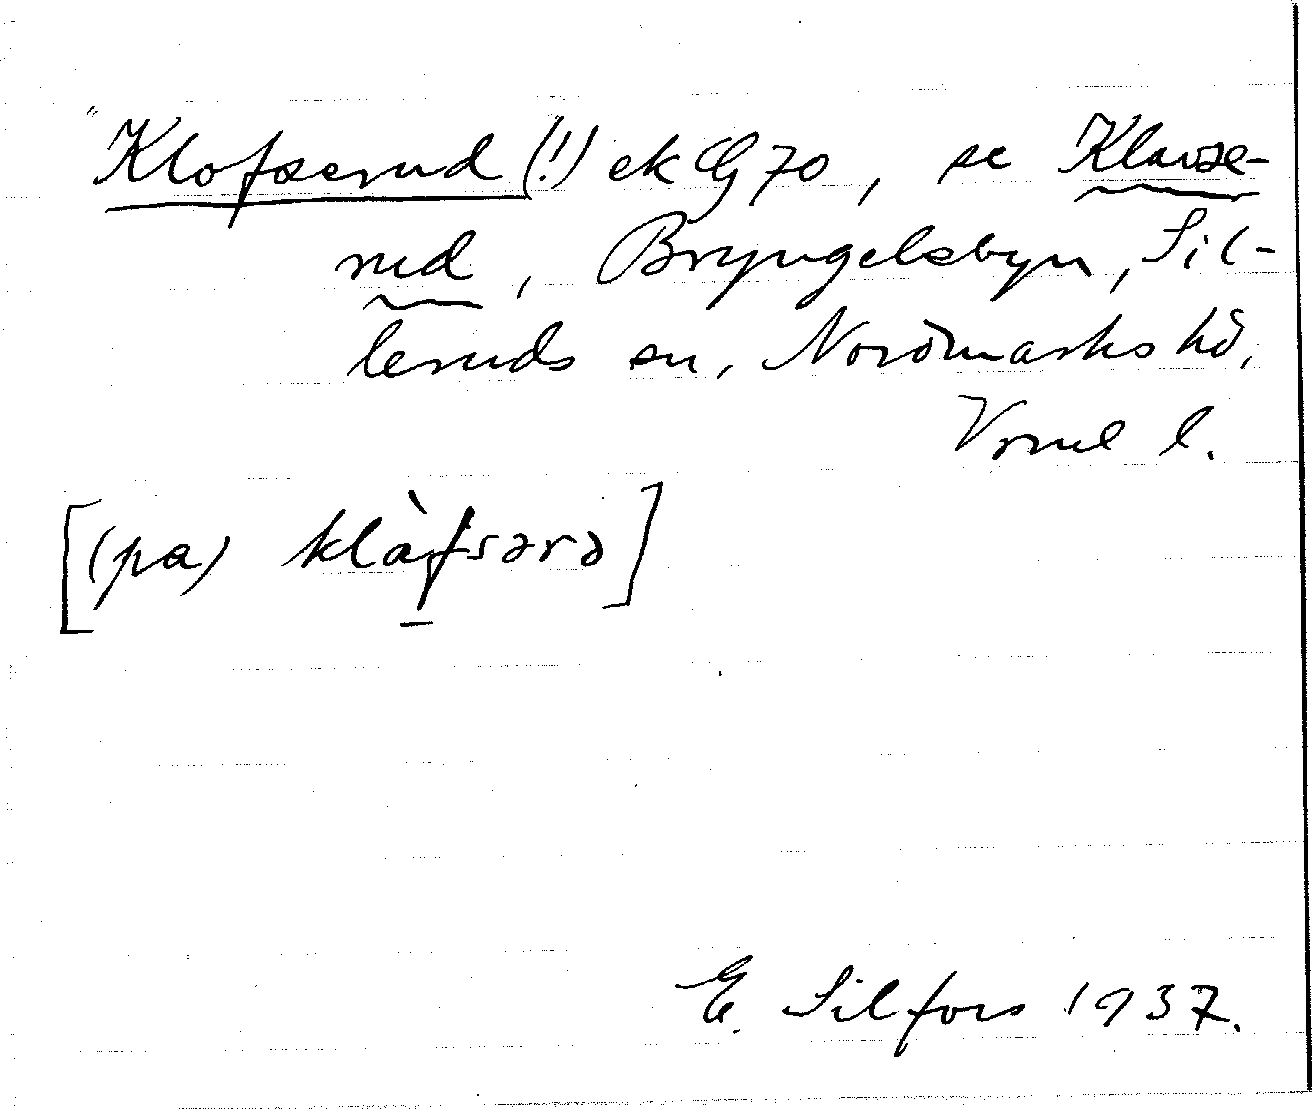 Klofserud (!) ek G 70, se Klavse-
rud, Bryngelsbyn, Sil-
leruds sn, Nordmarks hd,
Vrml l.
[(pa) klàfsərə]
E. Silfors 1937.